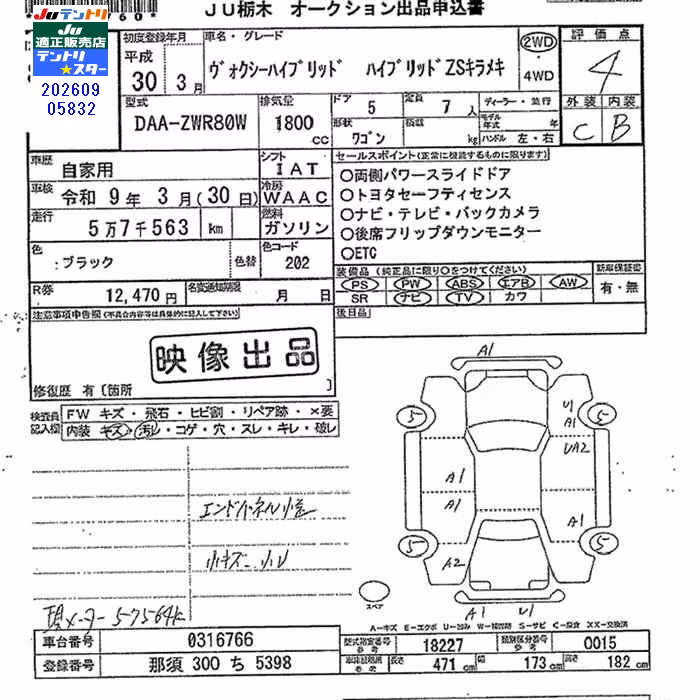 JU栃木 オークション出品申込書
Juテントリ
JU
適正販売店
テントリ★スター
202609
05832
初度登録年月
平成
30年 3月
車名・グレード
ヴォクシーハイブリッド ハイブリッドZSキラメキ
2WD
・
4WD
評価点
4
外装 内装
C B
型式
DAA-ZWR80W
排気量
1800 cc
ドア 5
定員 7人
形状 ワゴン
積載 kg
ディーラー・並行
モデル年式 年
ハンドル 左・右
車歴 自家用
シフト IAT
車検 令和 9年 3月(30日)
冷房 WAAC
走行 5万7千563 km
燃料 ガソリン
色 :ブラック
色替
色コード 202
R券 12,470円
名変通知期限 月 日
セールスポイント(正常に機能するものに限ります)
○両側パワースライドドア
○トヨタセーフティセンス
○ナビ・テレビ・バックカメラ
○後席フリップダウンモニター
○ETC
装備品(純正品に限り○をつけてください)
PS PW ABS エアB AW
SR ナビ TV カワ
新車保証書
有・無
後日品
注意事項申告欄(不具合内容等は具体的に記入して下さい)
映像出品
修復歴 有〔箇所
検査員記入欄
FW キズ・飛石・ヒビ割・リペア跡・×要
内装 キズ・汚レ・コゲ・穴・スレ・キレ・破レ
小キズ 小U
現メーター57564k
A1
5 5
U1
A1
UA2
A1
A1 A1
5 5
A2
A1 U1
スペア
A-キズ E-エクボ U-凹み W-補修跡 S-サビ C-腐食 XX-交換済
車台番号 0316766
登録番号 那須 300 ち 5398
型式指定番号 参考 18227
類別区分番号 参考 0015
長さ 471 cm
幅 173 cm
高さ 182 cm